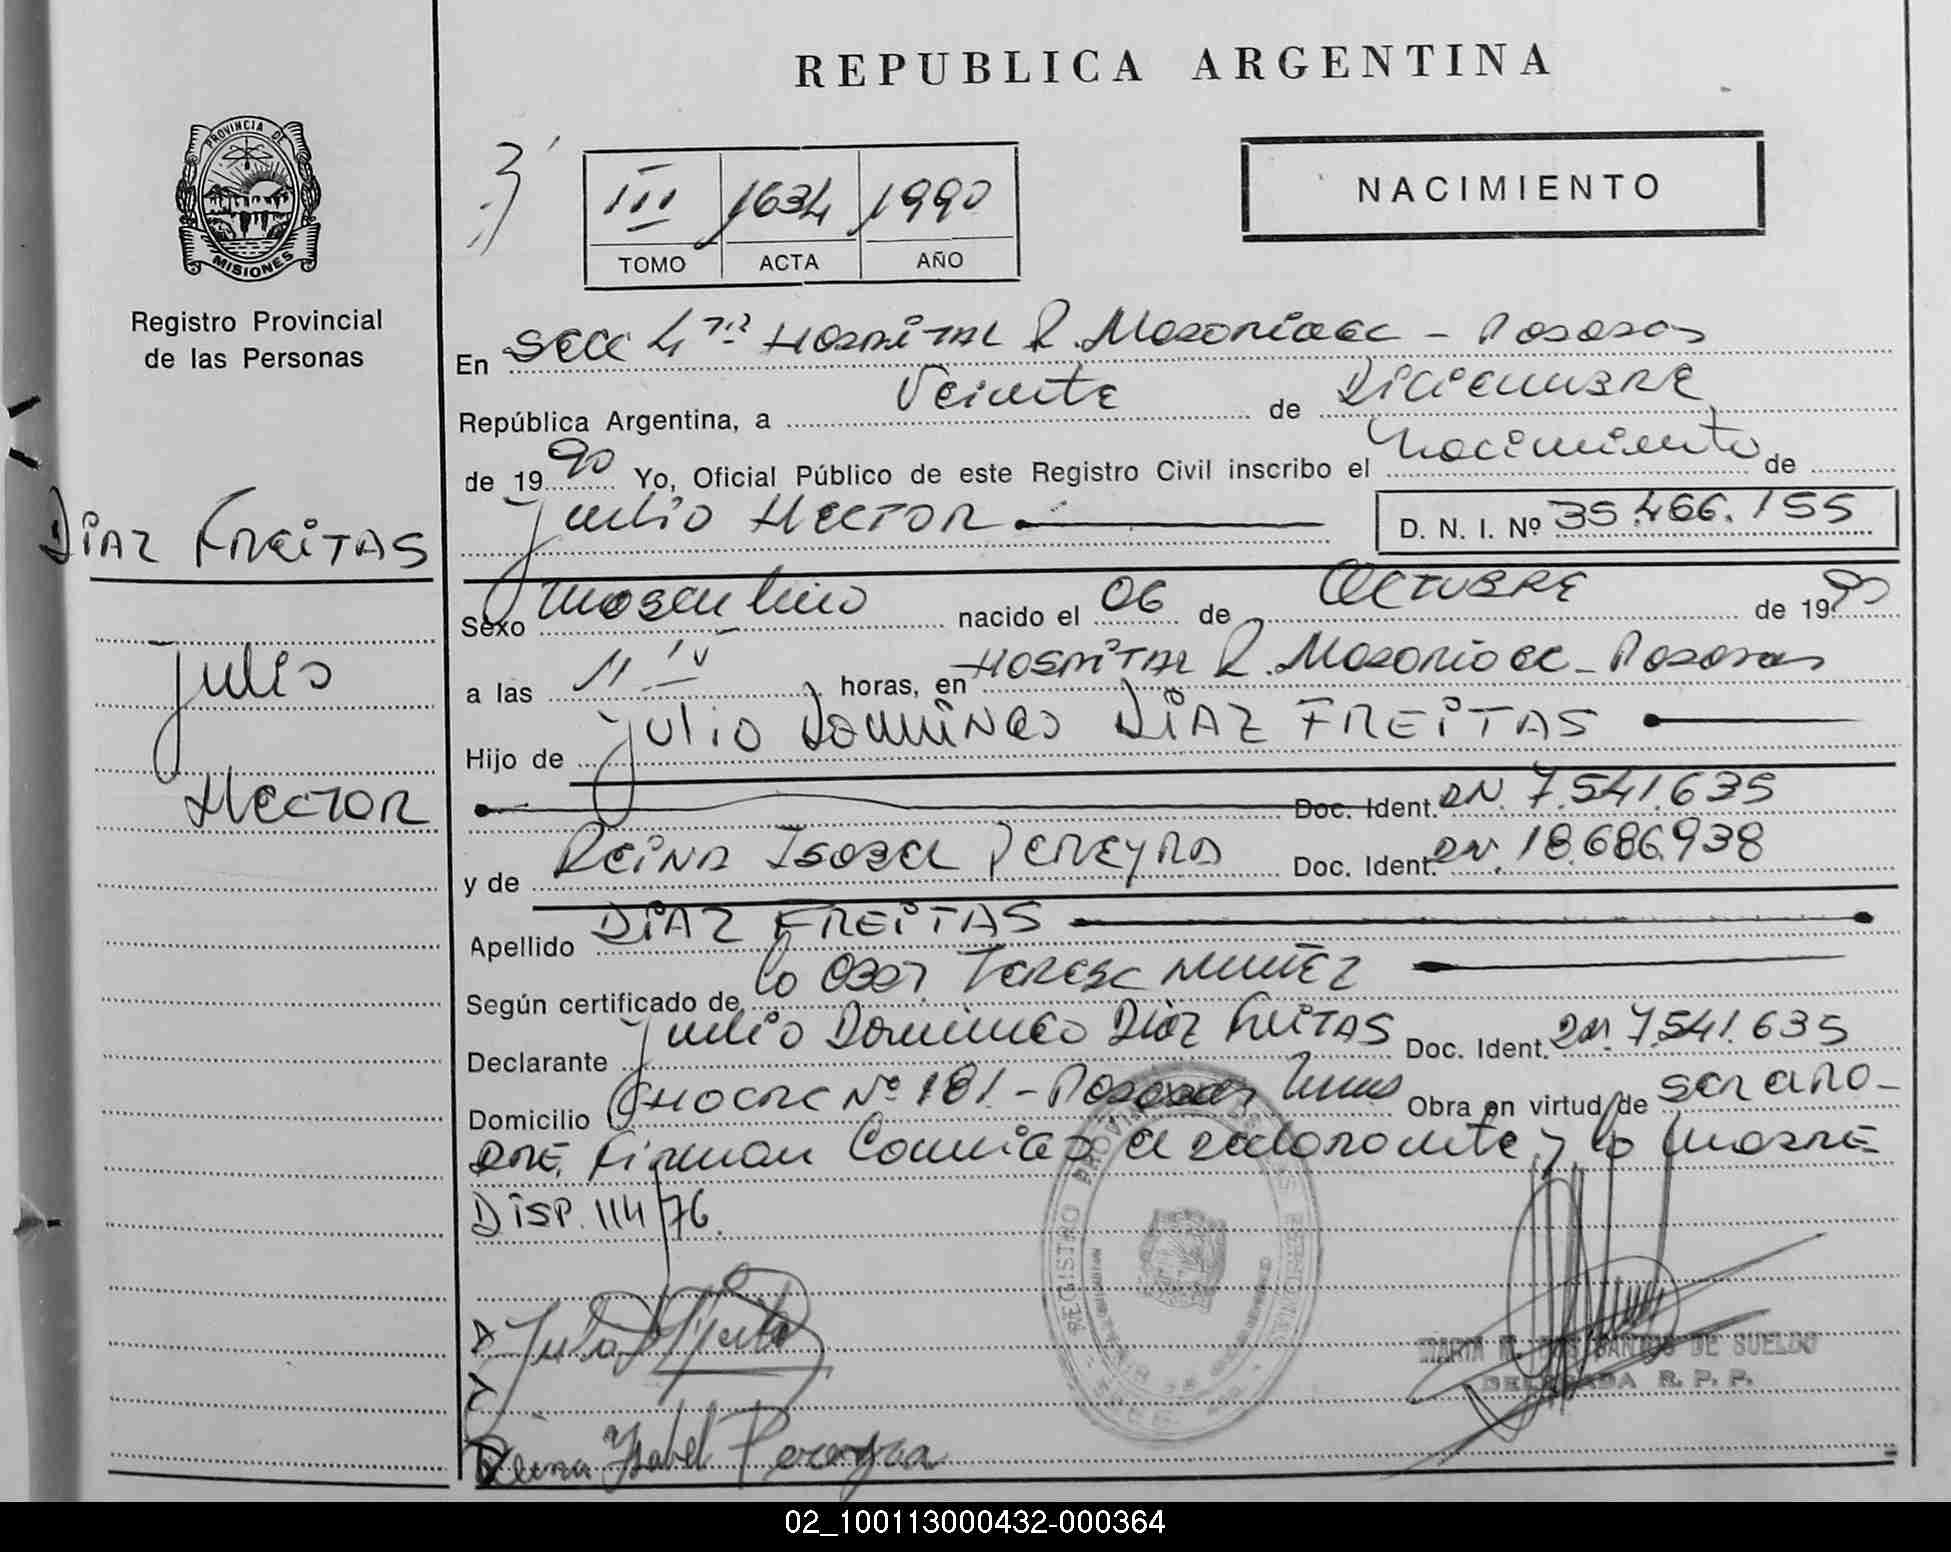 REPUBLICA ARGENTINA
PROVINCIA DE
MISIONES
Registro Provincial
de las Personas
III 1634 1990
TOMO ACTA AÑO
NACIMIENTO
En Secc 4ta Hospital R. Madariaga - Posadas
República Argentina, a Veinte de Diciembre
de 1990 Yo, Oficial Público de este Registro Civil inscribo el Nacimiento de
Julio Hector D. N. I. Nº 35.466.155
DiAZ FREiTAS
Julio
Hector
Sexo Masculino nacido el 06 de Octubre de 1990
a las 11 horas, en Hospital R. Madariaga - Posadas
Hijo de Julio Domingo DiAZ FREiTAS
Doc. Ident. DN. 7.541.635
y de Reina Isabel Pereyra Doc. Ident. DN. 18.686.938
Apellido DiAZ FREiTAS
Según certificado de la Obst. Teresa Nuñez
Declarante Julio Domingo Diaz Freitas Doc. Ident. DN. 7.541.635
Domicilio Nº 181 - Posadas Obra en virtud de ser el Pa-
dre. Firman Conmigo el declarante y la Madre
Disp. 114/76.
Reina Ysabel Pereyra
REGISTRO PROVINCIAL DE LAS PERSONAS
MARIA DOS SANTOS DE SUELDO
DELEGADA R. P. P.
02_100113000432-000364